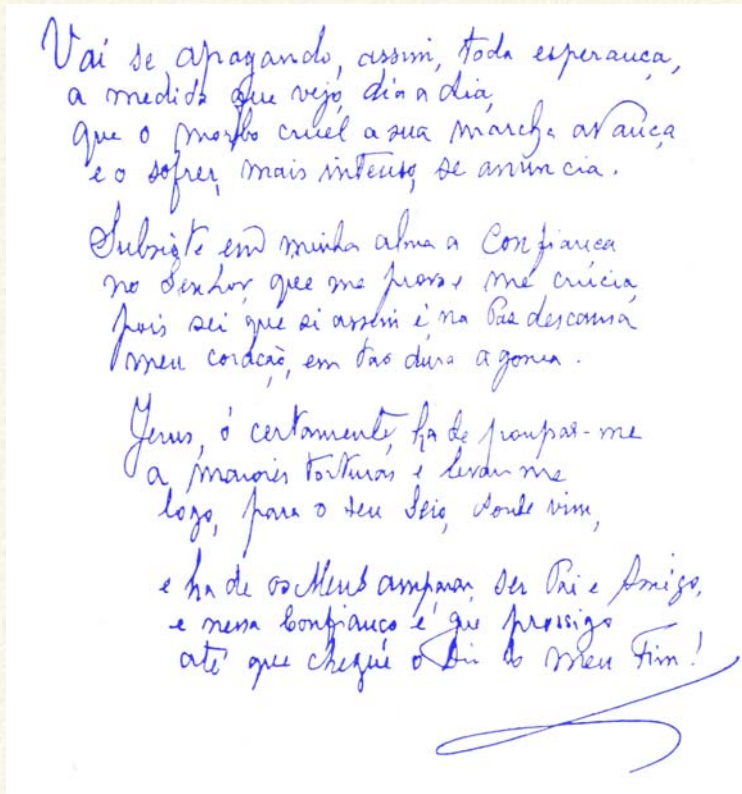 Vai se apagando, assim, toda esperança,
a medida que vejo, dia a dia,
que o morbo cruel a sua marcha avança
e o sofrer, mais intenso, se anuncia.
Subsiste em minha alma a Confiança
no Senhor, que me prova e me crucia,
pois sei que si assim é na Paz descansa
meu coração, em tão dura agonia.
Jesus, ó certamente, ha de poupar-me
a maiores torturas e levar-me
logo, para o seu Seio, donde vim,
e ha de os Meus amparar, ser Pai e Amigo,
e nessa Confiança é que prossigo
até que chegue o Dia do meu Fim!